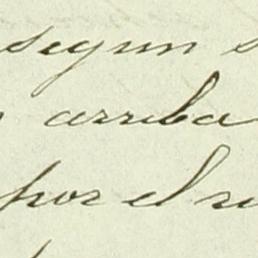 segun
arriba
por el